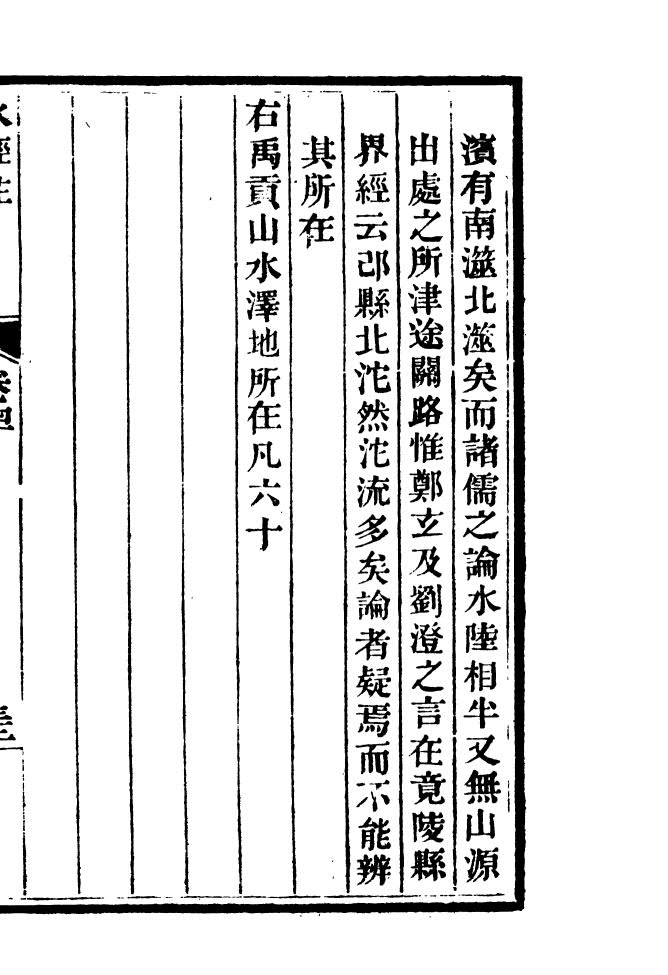 濱有南澨北澨矣而諸儒之論水陸相半又無山源
出處之所津途關路惟鄭玄及劉澄之言在竟陵縣
界經云邔縣北沱然沱流多矣論者疑焉而不能辨
其所在
右禹貢山水澤地所在凡六十
水經注